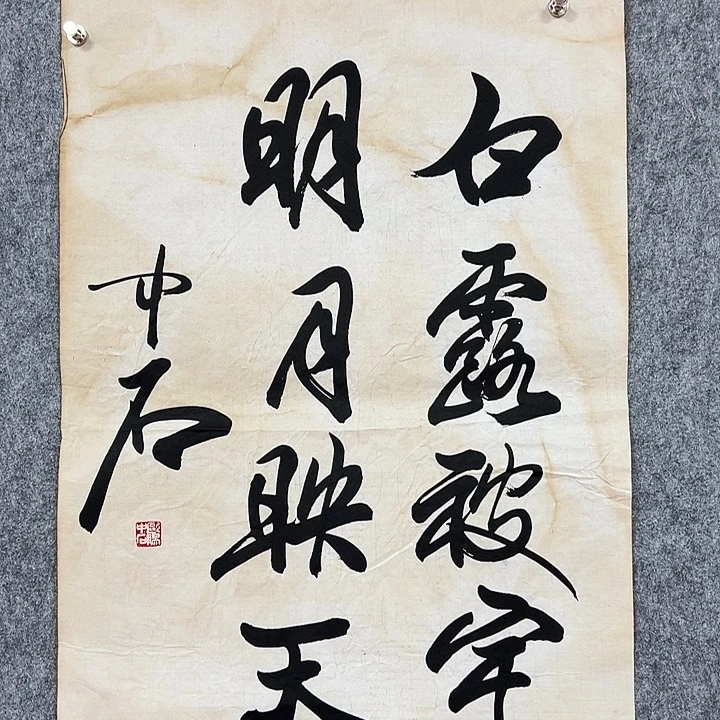 白露被宇
明月映天
中石